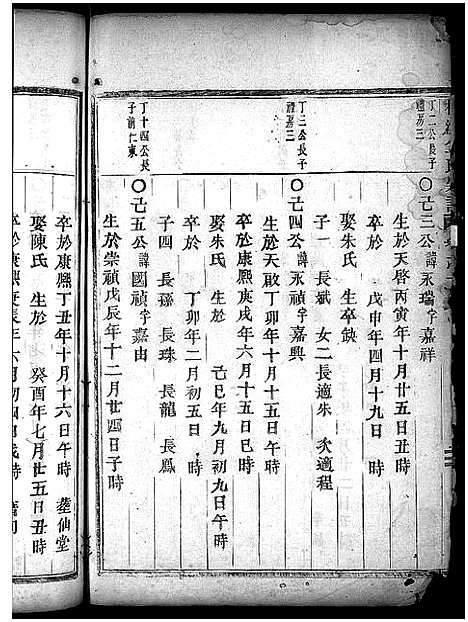 丁二公長子
禮易三
〇己三公諱永瑞字嘉祥
生於天啓丙寅年十月廿五日丑時
卒於 戊申年四月十九日 時
娶朱氏 生卒缺
子一 長斌 女二 長適朱 次適程
丁三公長子
禮易三
〇己四公諱永禎字嘉興
生於天啟丁卯年十二月十五日 時
卒於康熙庚戌年六月十五日巳時
娶朱氏 生於 己巳年九月初九日午時
卒於 丁卯年二月初五日 時
子四 長孫 長珠 長龍 長鳳
丁十四公長
子前仁東
〇己五公諱國禎字嘉由
生於崇禎戊辰年十二月廿四日子時
卒於康熙丁丑年十月十六日午時 塟仙堂
娶陳氏 生於 癸酉年七月廿五日丑時
卒於康熙 年六月初四日戌時